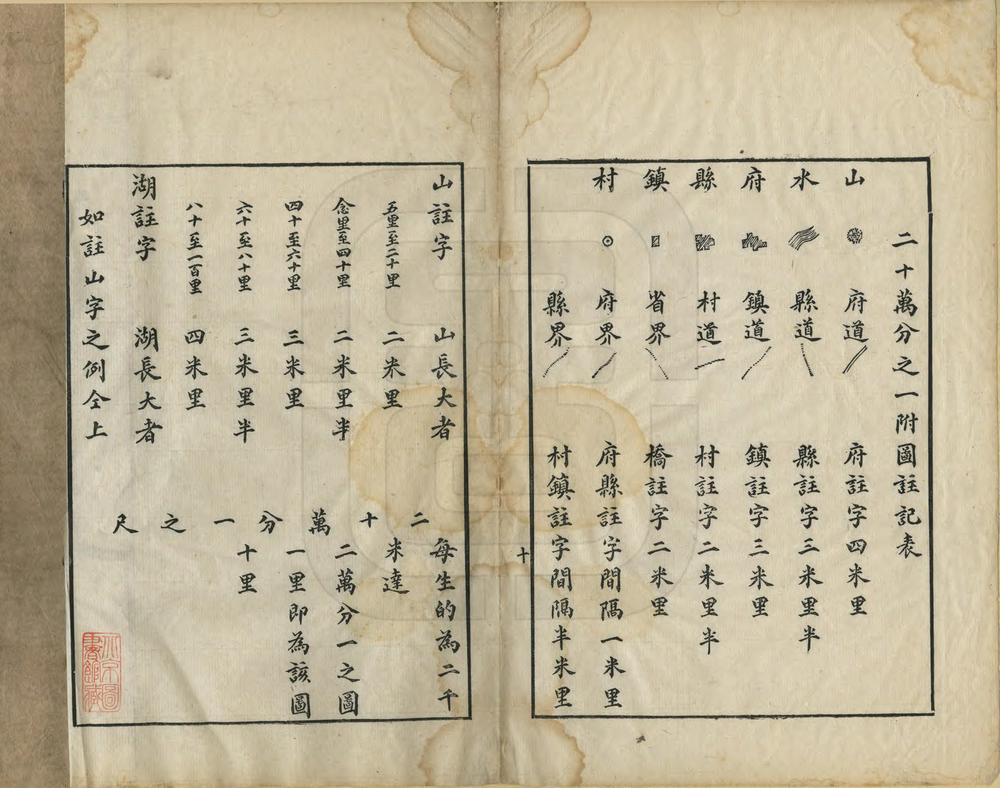 二十萬分之一附圖註記表
山 府道 府註字四米里
水 縣道 縣註字三米里半
府 鎮道 鎮註字三米里
縣 村道 村註字二米里半
鎮 省界 橋註字二米里
村 府界 府縣註字間隔一米里
縣界 村鎮註字間隔半米里
十
山註字 山長大者
五里至二十里 二米里
念里至四十里 二米里半
四十至六十里 三米里
六十至八十里 三米里半
八十至一百里 四米里
湖註字 湖長大者
如註山字之例仝上
二十萬分一之尺
每生的為二千
米達
二萬分一之圖
一里即為該圖
十里